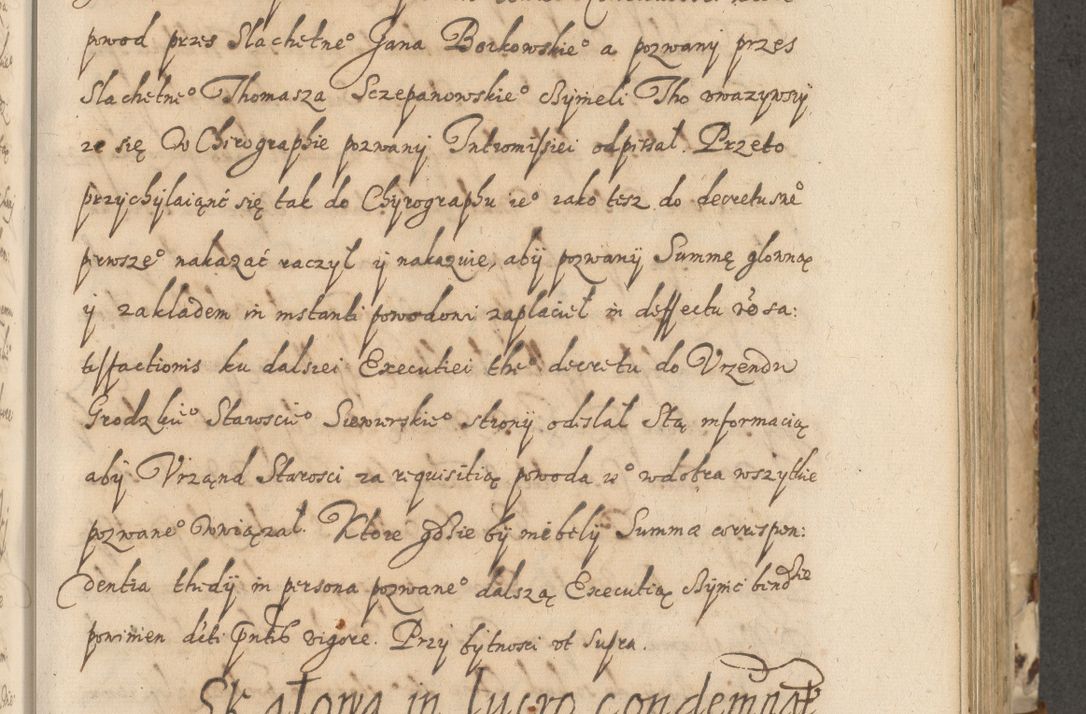 powod przes Slachetne° Jana Borkowskie° a pozwany przes
Slachetne° Thomasza Sczepanowskie° czynieli Tho vwazywsy
ze się w Chirographie pozwany Intromissiei odpissał. Przeto
przychylaiąnć się tak do Chyrographu ie° iako tesz do decretu
pirwsze° nakazać raczył y nakazuie, aby pozwany Summę glowną
y zakladem in instanti powodowi zaplacieł in deffectu sa:
tisfactionis ku dalszei Executiei the° decretu do Vrzendu
Grodzkie° Staroscie° Siewierskie° strony odeslał Stą informacią
aby Vrząnd Starosci za requisitią powoda w dobra wszytkie
pozwane° wwiązał. Ktore gdzie by nie bely Summa correspon:
dentia thedy in persona pozwane° dalszą Executią czynic bendzie
powinien vigore. Przy bytnosci vt supra.
Skałowa in lucro condemnat